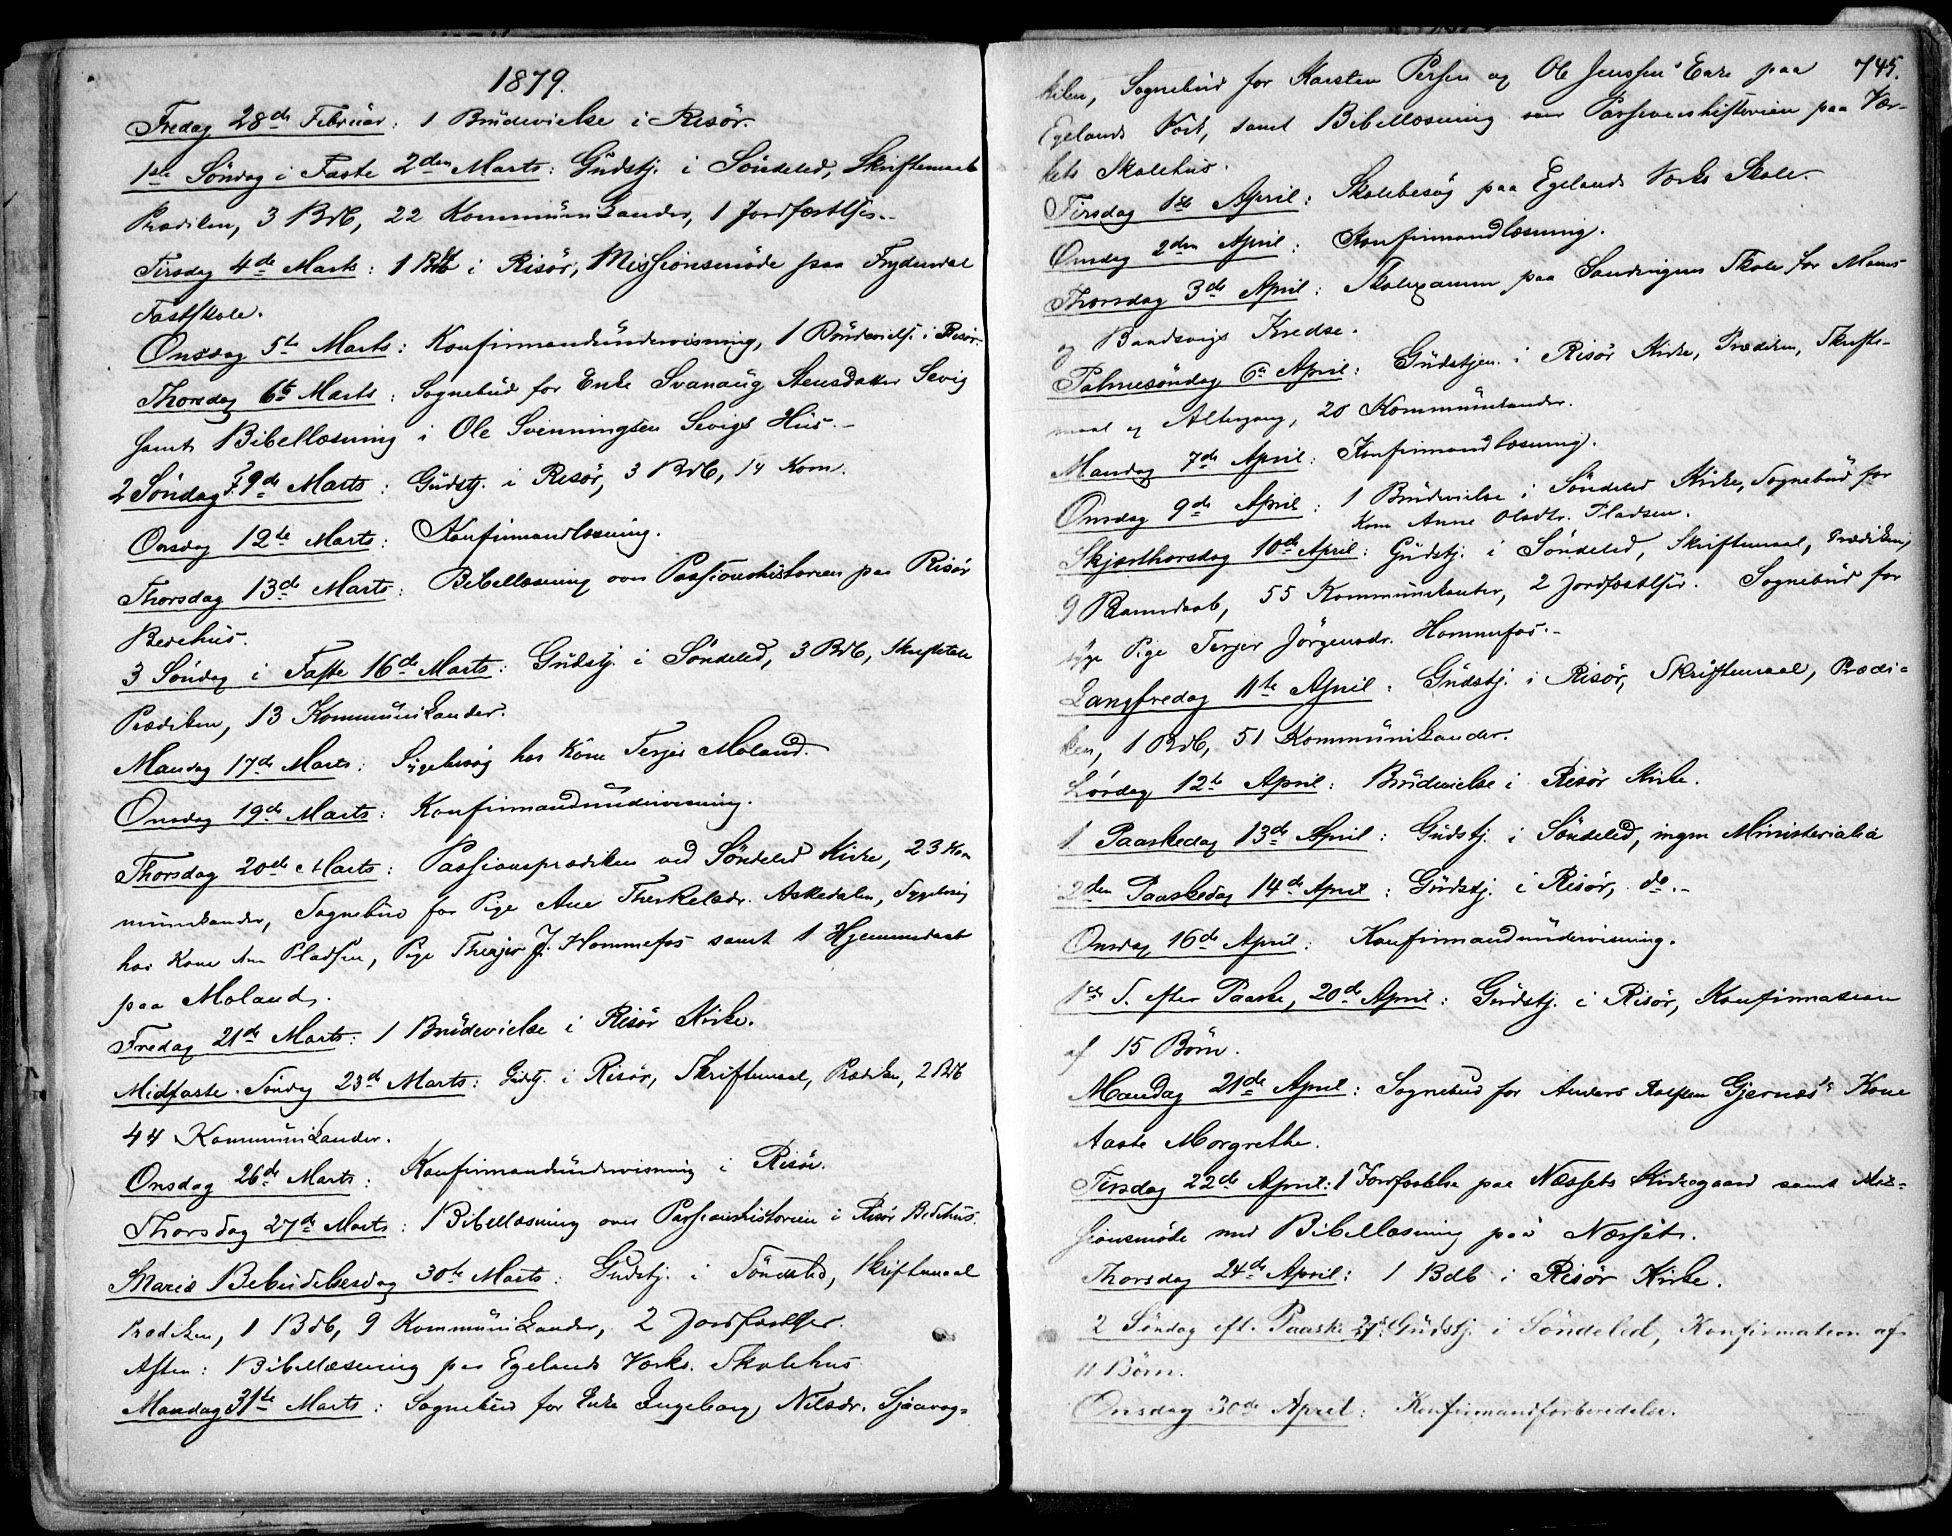 1879.
Fredag 28de Februar: 1 Brüdevielse i Risör.
1ste Söndag i Faste 2den Marts: Güdstj. i Söndeled, Skriftemaal
Prædiken, 3 BdB, 22 Kommünikander, 1 Jordfæstelse.-
Tirsdag 4de Marts: 1 BdB i Risör, Missionsmöde paa Frydendal
Fastskole.
Onsdag 5te Marts: Konfirmandündervisning, 1 Brüdevielse i Risör.
Thorsdag 6te Marts: Sognebüd for Enke Svanaug Stensdatter Sevig
samt Bibellæsning i Ole Svenningsen Sevigs Hüs.-
2 Söndag i F. 9de Marts: Güdstj. i Risör, 3 BdB, 14 Kom.
Onsdag 12te Marts: Konfirmandlæsning.
Thorsdag 13de Marts: Bibellæsning over Passionshistorien paa Risör
Bedehüs.
3 Söndag i Faste 16de Marts: Güdstj. i Söndeled, 3 BdB, Skriftetale
Prædiken, 13 Kommünikander.
Mandag 17de Marts: Sygebesög hos Kone Terjer Moland.
Onsdag 19de Marts: Konfirmandündervisning.
Thorsdag 20de Marts: Passionsprædiken ved Söndeled Kirke, 23 Kom
münikander, Sognebüd for Pige Ane Therkelsdr. Askedalen, Sygebesög
hos Kone Ane Pladsen, Pige Therjer J. Hommefos samt 1 Hjemmedaab
paa Moland.
Fredag 21de Marts: 1 Brüdevielse i Risör Kirke.
Midfaste Söndag 23de Marts: Gudstj. i Risör, Skriftemaal, Prædiken, 2 BdB
44 Kommünikander.
Onsdag 26de Marts: Konfirmandündervisning i Risör.
Thorsdag 27de Marts: Bibellæsning over Passionshistorien i Risör Bedehus.
Mariæ Bebudelsesdag 30te Marts: Gudstj. i Söndeled, Skriftemaal
Prædiken, 1 BdB, 9 Kommünikander, 2 Jordfæstelser.
Aften: Bibellæsning paa Egelands Værks Skolehus.
Mandag 31te Marts: Sognebud for Enke Ingeborg Nilsdr. Sjöavog-
745.
kilen, Sognebüd for Karsten Persen og Ole Jenssens Enke paa
Egelands Værk, samt Bibellæsning over Passionshistorien paa Vær-
kets Skolehus.
Tirsdag 1ste April: Skolebesög paa Egelands Værks Skole.
Onsdag 2den April: Konfirmandlæsning.
Thorsdag 3de April: Skoleexamen paa Sandvigens Skole for
og Bandsvigs Kredse.
Palmesöndag 6te April: Güdstjen. i Risör Kirke, Prædiken, Skrifte-
maal og Altergang, 20 Kommünikander.
Mandag 7de April: Konfirmandlæsning.
Onsdag 9de April: 1 Brüdevielse i Söndeled Kirke, Sognebud for
Kone Anne Olsdtr. Pladsen.
Skjærthorsdag 10de April: Güdstj. i Söndeled, Skriftemaal, Prædiken,
9 Barnedaab, 55 Kommünikanter, 2 Jordfæstelser. Sognebüd for
syge Pige Terjer Jörgensdr. Hommefos.-
Langfredag 11te April: Güdstj. i Risör, Skriftemaal, Prædi-
ken, 1 BdB, 51 Kommünikander.
Lördag 12te April: Brüdevielse i Risör Kirke.
1 Paaskedag 13de April: Güdstj. i Söndeled, ingen Ministerialia
2den Paaskedag 14de April: Güdstj. i Risör, do.-
Onsdag 16de April: Konfirmandündervisning.
1ste S. efter Paaske, 20de April: Güdstj. i Risör, Konfirmation
af 15 Börn.
Mandag 21de April: Sognebud for Anders Rolfsen Gjernæs's Kone
Aaste Morgrethe.
Tirsdag 22de April: 1 Jordfæstelse paa Næssets Kirkegaard samt Mis-
sionsmöde med Bibellæsning paa Næsset.
Thorsdag 24de April: 1 Bdb i Risör Kirke.
2 Söndag eft. Paaske 27de: Güdstj. i Söndeled, Konfirmation af
11 Börn.
Onsdag 30de April: Konfirmandforberedelse.